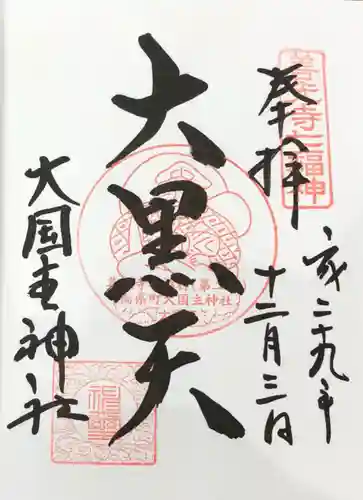 奉拝
善光寺七福神
二十九年
十二月三日
大黒天
県町大国主神社
大国主神社